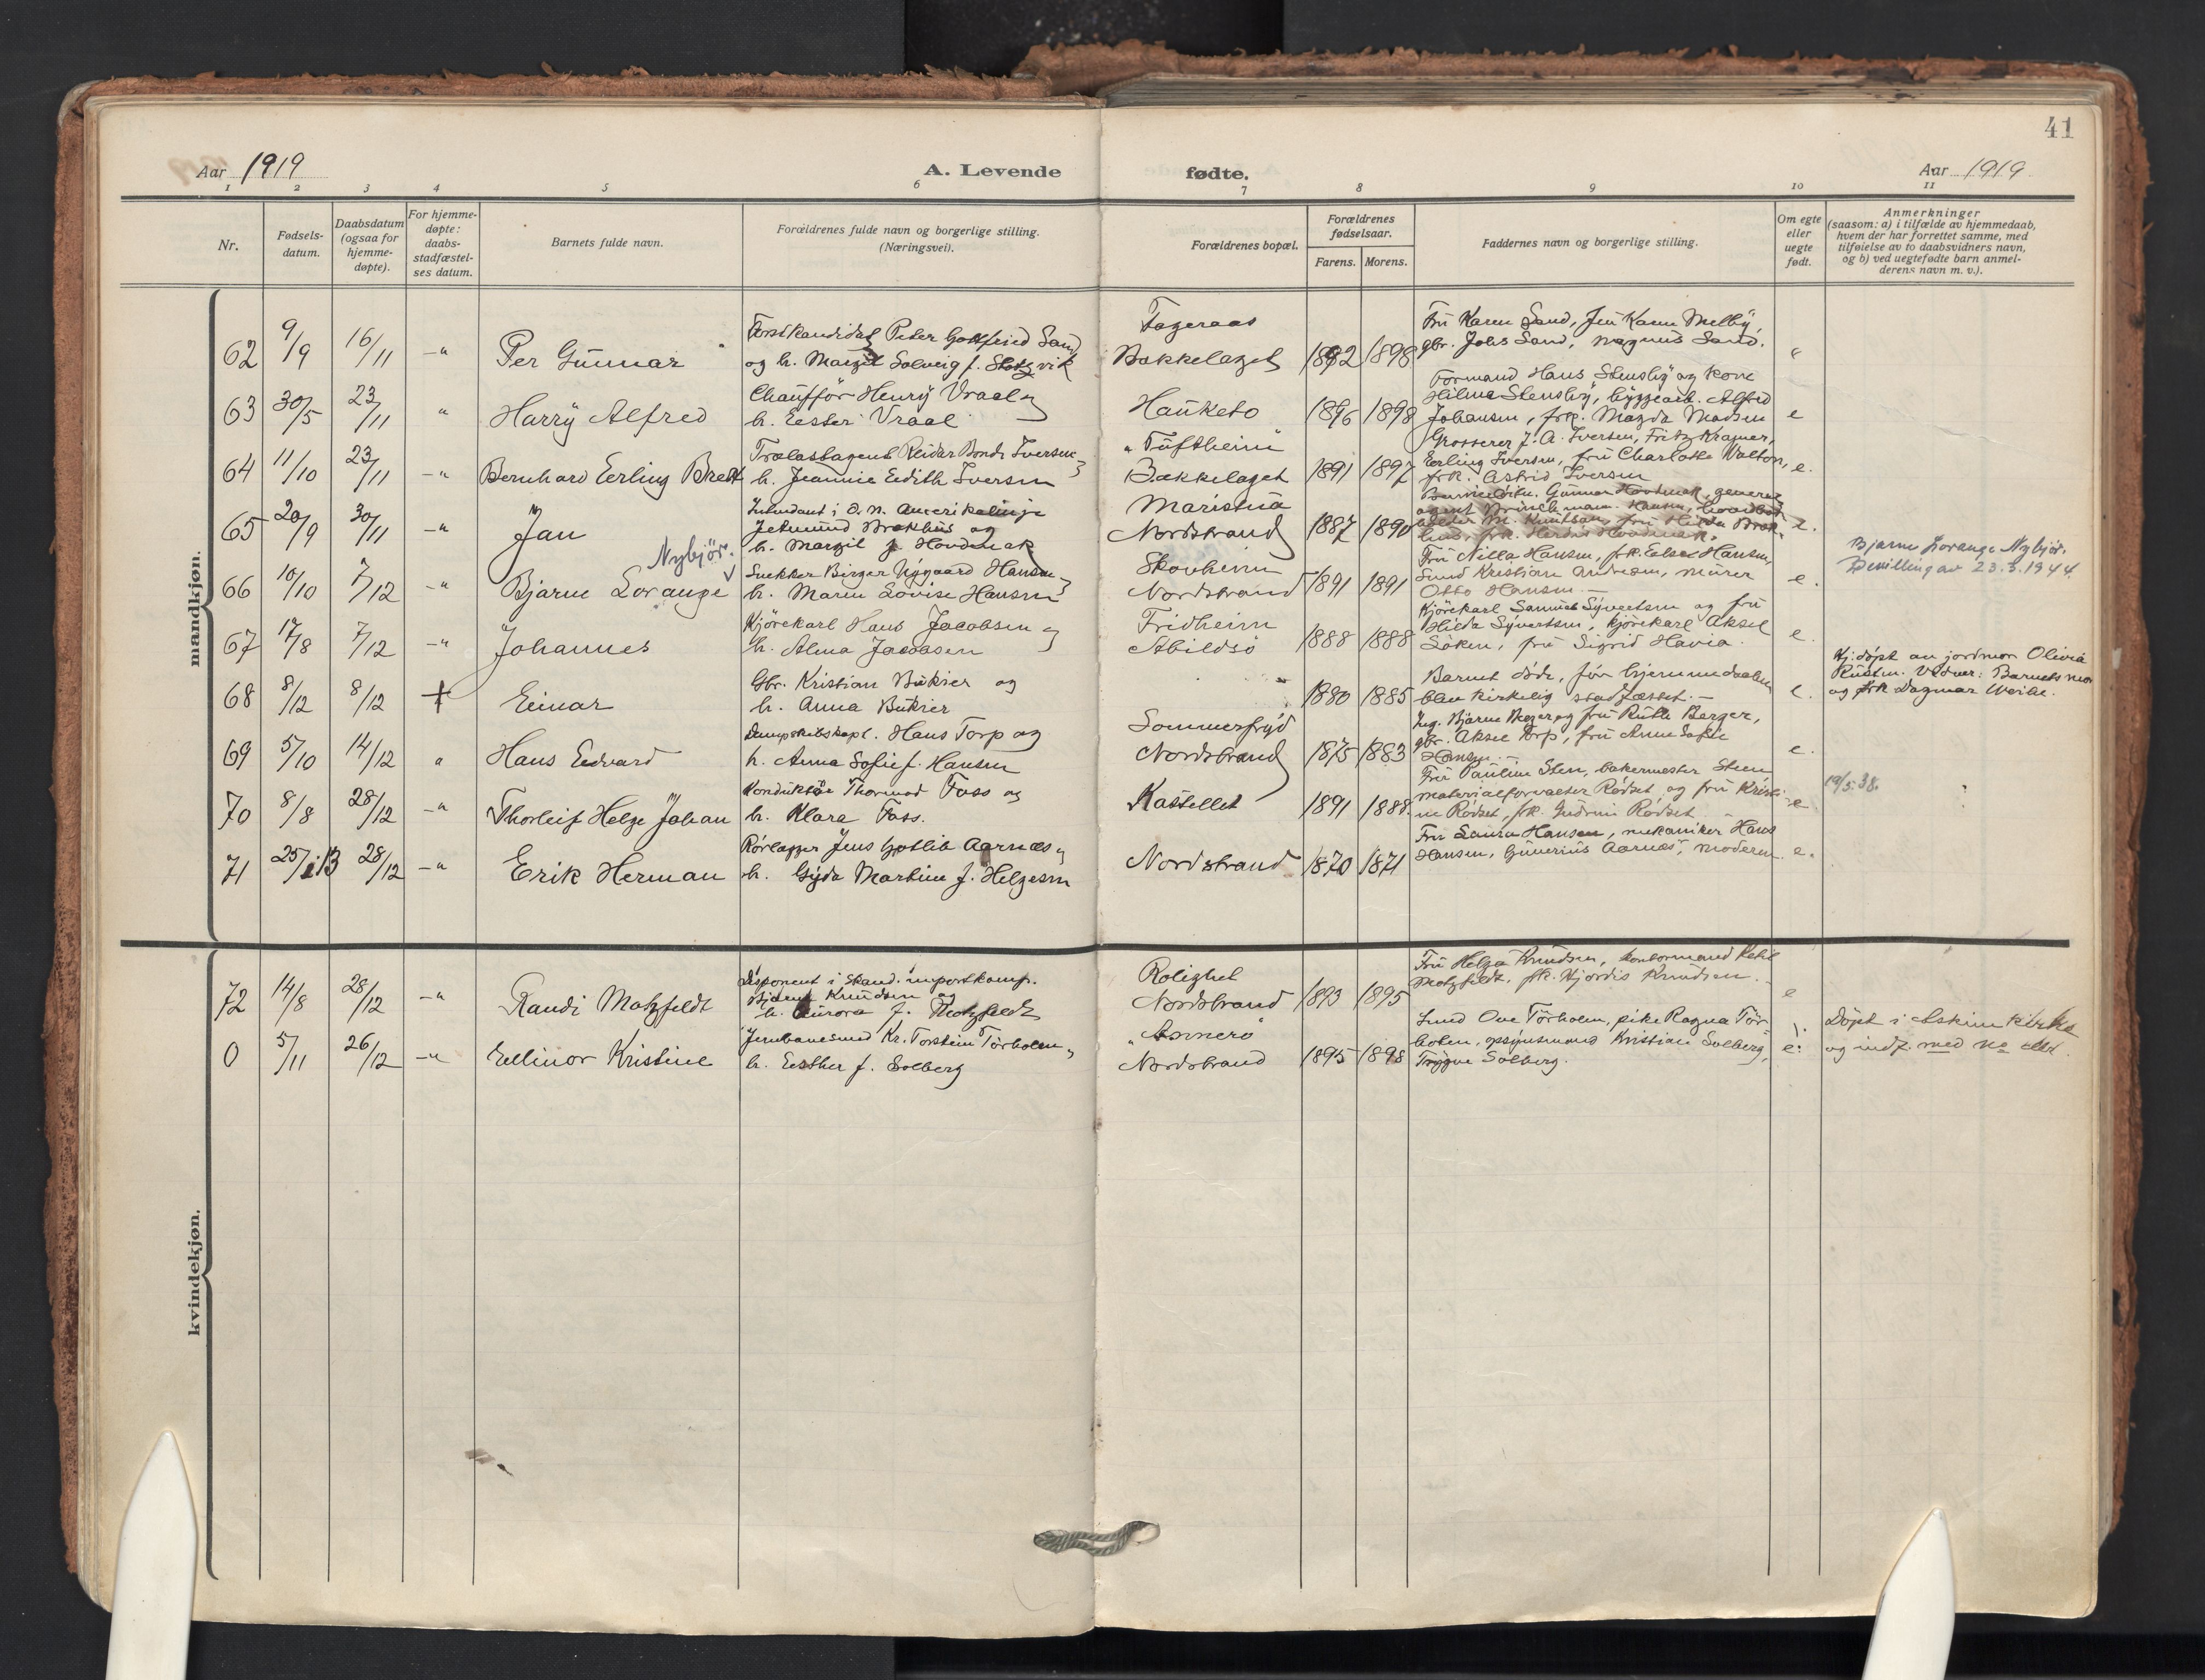 41
Aar 1919
A. Levende
fødte.
Aar 1919
1 2 3 4 5 6 7 8 9 10 11
Nr.
Fødsels-
datum.
Daabsdatum
(ogsaa for
hjemme-
døpte).
For hjemme-
døpte:
daabs-
stadfæstel-
ses datum.
Barnets fulde navn.
Forældrenes fulde navn og borgerlige stilling.
(Næringsvei).
Forældrenes bopæl.
Forældrenes
fødselsaar.
Farens. Morens.
Faddernes navn og borgerlige stilling.
Om egte
eller
uegte
født.
Anmerkninger
(saasom: a) i tilfælde av hjemmedaab,
hvem der har forrettet samme, med
tilføielse av to daabsvidners navn,
og b) ved uegtefødte barn anmel-
derens navn m. v.).
mandkjøn.
62 9/9 16/11 -"- Per Gunnar
Forstkandidat Peter Gottfried Sand
og h. Margit Solveig f.
Fageraas
Bækkelaget
1892 1898
Fru Karen Sand, Karen Melby,
gbr. Johs Sand, Magnus Sand.
e
63 30/5 23/11 " Harry Alfred
Chaufför Henry Vraal og
h. Ester Vraal
Hauketo
1896 1898
Formand Hans Stensby og kone
Hilma Stensby, byggearb. Alfred
Johansen, frk. Magda Madsen
e
64 11/10 23/11 -"- Bernhard Erling Brett
Trælastagent Reidar Bonde Iversen
h. Jeannie Edith Iversen
"Tuftheim"
Bækkelaget
1891 1897
Grosserer J. A. Iversen, Fritz Kramer,
Erling Iversen, fru Charlotte Walton,
frk. Astrid Iversen
e.
65 20/9 30/11 -"- Jan
Intendant i d. n. Amerikalinje
Jetmund Brækhus og
h. Margit f. Hovdenak
Maristua
Nordstrand
1887 1890
Gunnar Hovdenak, general
agent Hansen,
M. Knutsen, fru Hilda Bræk-
hus, frk. Herdis Hovdenak.
e.
66 10/10 7/12 -"- Bjarne Lorange
Nybjör.
Snekker Birger Nygaard Hansen
h. Maren Lovise Hansen
Skovheim
Nordstrand
1891 1891
Fru Nilla Hansen, frk. Elsa Hansen,
Smed Kristian Andresen, murer
Otto Hansen.—
e.
Bjarne Lorange Nybjör.
Bevilling av 23.3.1944.
67 17/8 7/12 -"- Johannes
Kjörekarl Hans Jacobsen og
h. Alma Jacobsen
Fridheim
Abildsö
1888 1888
Kjörekarl Samuel Syvertsen og fru
Hilda Syvertsen, kjörekarl Aksel
Söken, fru Sigrid Havia.
e.
68 8/12 8/12 + Einar
Gbr. Kristian Bukier og
h. Anna Bukier
1880 1885
Barnet döde, för hjemmedaaben
blev kirkelig stadfæstet.—
e.
Hj.döpt av jordmor Olivia
Rustin. Vidner: Barnets mor
og frk Dagmar Weibe.
69 5/10 14/12 " Hans Edvard
Dampskibskapt. Hans Torp og
h. Anna Sofie f. Hansen
Sommerfryd
Nordstrand
1875 1883
Ing. Bjarne Berger og fru Ruth Berger,
gbr. Aksel Torp, fru Anne Sofie
Hansen.—
e.
70 8/8 28/12 -"- Thorleif Helge Johan
Konduktör Thormod Foss og
h. Klara Foss.
Kastellet
1891 1888.
Fru Pauline Steen, bakermester Steen
materialforvalter Rödset og fru Kristi-
ne Rödset, frk. Gudrun Rödset
e
19/5.38.
71 25/1 13 28/12 -"- Erik Herman
Rörlægger Jens Gotlib Aarnæs og
h. Gyda Martine f. Helgesen
Nordstrand
1870 1871
Fru Laura Hansen, mekaniker Hans
Hansen, Gunerius Aarnæs, moderen
e.
kvindekjøn.
72 14/8 28/12 -"- Randi Motzfeldt
Disponent i Skand. importkomp.
Knudsen og
h. Aurora f. Motzfeldt
Rolighet
Nordstrand
1893 1895
Fru Helga Knudsen, kontormand Ketil
Motzfeldt, frk. Hjördis Knudsen.
e
0 5/11 26/12 -"- Ellinor Kristine
Jernbanesmed Kr. Torstein Törholen og
h. Esther f. Solberg
Nordstrand
1895 1898
Smed Ove Törholen, pike Ragna Tör-
holen, opsynsmand Kristian Solberg,
Trygve Solberg.
e.
Döpt i Askim kirke
og indf. med no der.